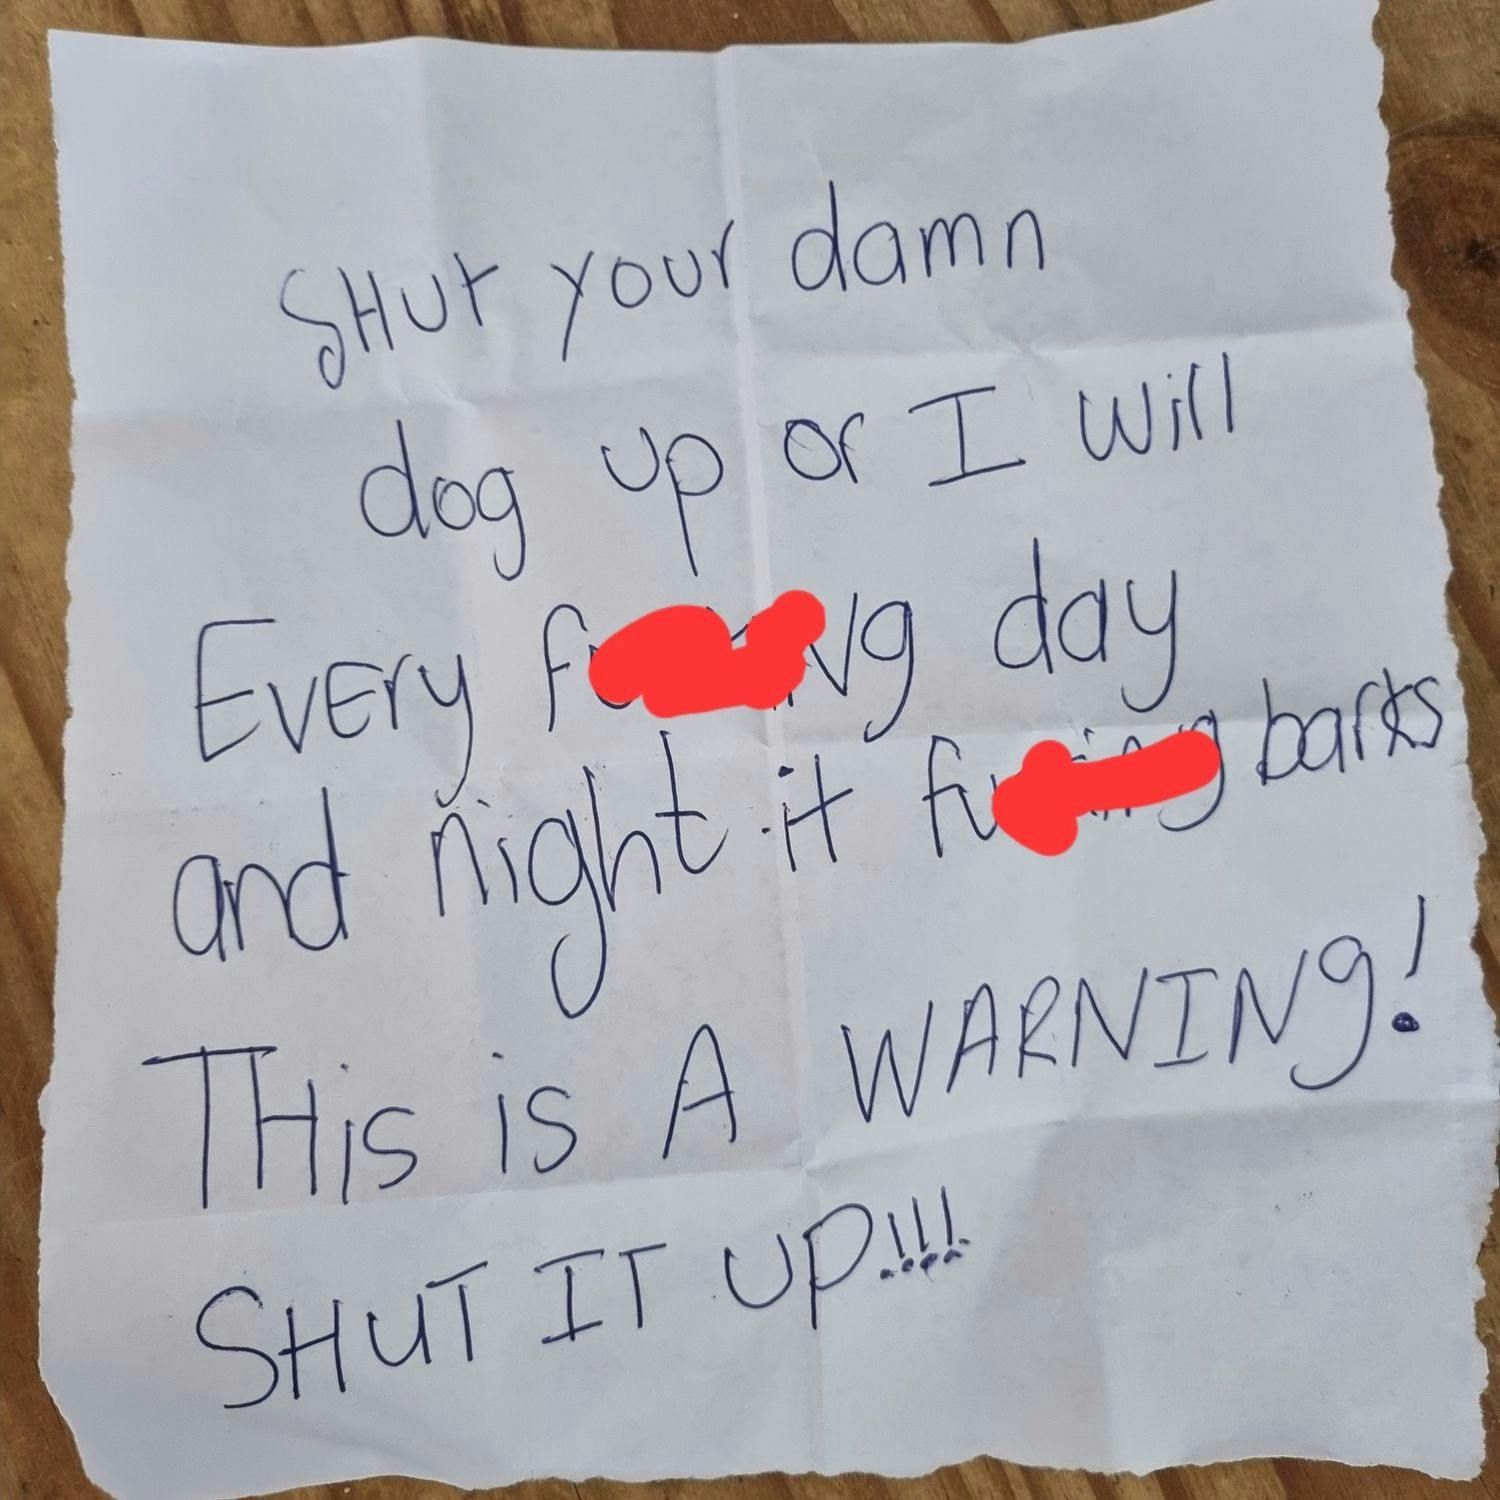 SHUT your damn
dog up or I will
Every day
and night it barks
THis is A WARNINg!
SHUT IT UP!!!!